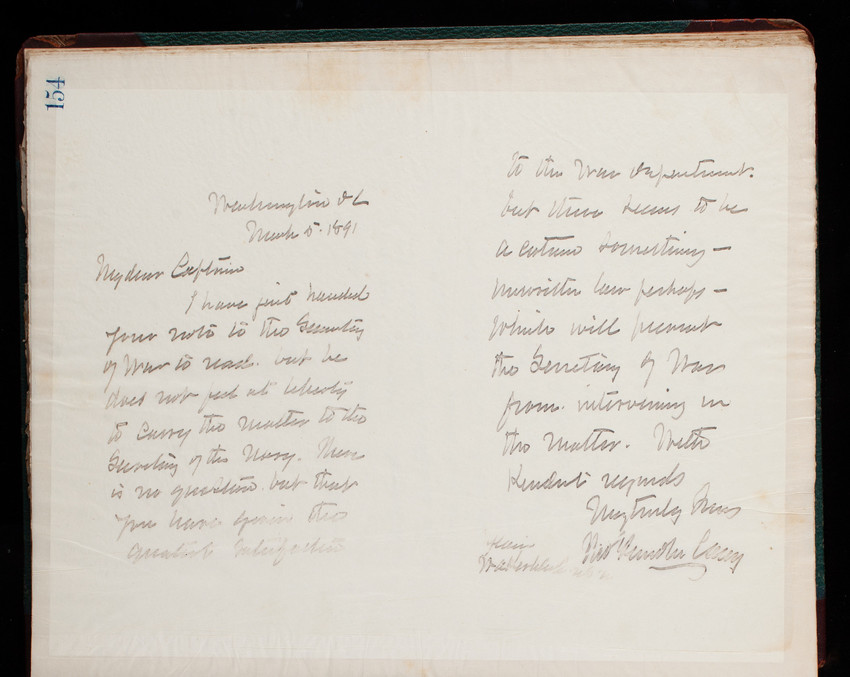 154
Washington DC
March 5. 1891
My dear Captain
I have just handed
your note to the Secretary
of War to read. but he
does not feel at liberty
to carry the matter to the
Secretary of the Navy. There
is no question but that
you have given the
greatest satisfaction
to the War Department.
but there seems to be
a certain something —
unwritten law perhaps —
which will prevent
the Secretary of War
from intervening in
the matter. With
Kindest regards
Very truly Yours
Thos Lincoln Casey